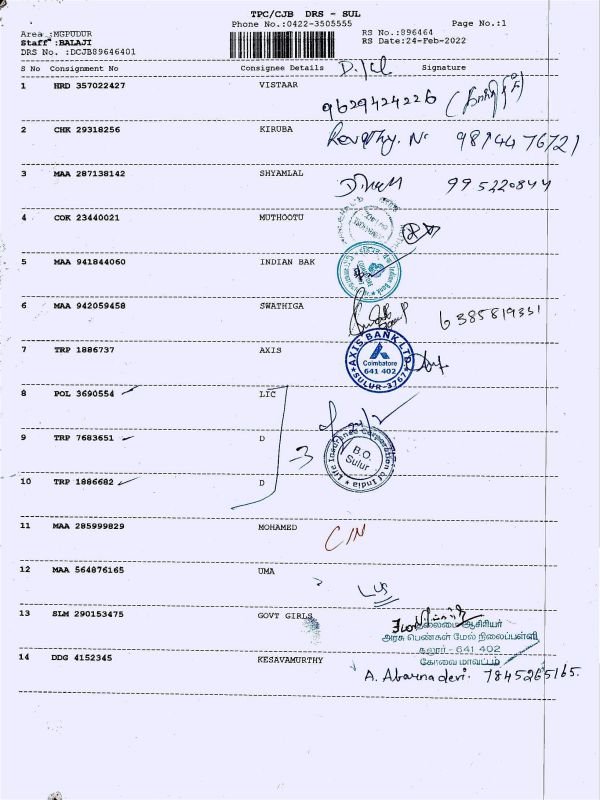 TPC/CJB DRS - SUL
Phone No.:0422-3505555
Page No.:1
Area :MGPUDUR
Staff :BALAJI
DRS No. :DCJB89646401
RS No.:896464
RS Date:24-Feb-2022
S No Consignment No Consignee Details Signature
1 HRD 357022427 VISTAAR
9629424226
2 CHK 29318256 KIRUBA
Revathy. N 9894476721
3 MAA 287138142 SHYAMLAL
995220844
4 COK 23440021 MUTHOOTU
5 MAA 941844060 INDIAN BAK
Indian Bank
6 MAA 942059458 SWATHIGA
6385819331
7 TRP 1886737 AXIS
AXIS BANK LTD.
Coimbatore
641 402
SULUR-3767
8 POL 3690554 LIC
9 TRP 7683651 D
3
Life Insurance Corporation of India
B.O.
Sulur
10 TRP 1886682 D
11 MAA 285999829 MOHAMED
C/N
12 MAA 564876165 UMA
13 SLM 290153475 GOVT GIRLS
தலைமை ஆசிரியர்
அரசு பெண்கள் மேல் நிலைப்பள்ளி
சூலூர் - 641 402
கோவை மாவட்டம்
14 DDG 4152345 KESAVAMURTHY
A. Abarnadevi. 7845265165.